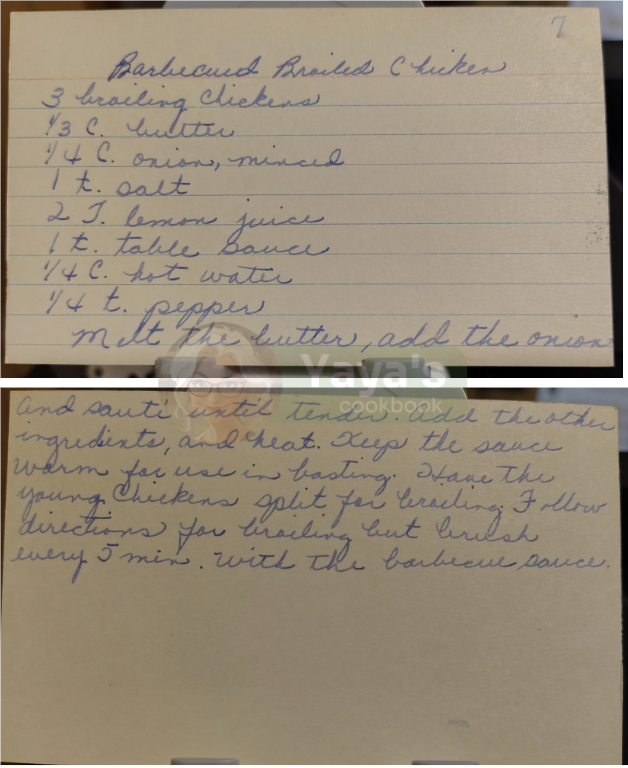 7
Barbecued Broiled Chicken
3 broiling Chickens
1/3 C. butter
1/4 C. onion, minced
1 t. salt
2 T. lemon juice
1 t. table sauce
1/4 C. hot water
1/4 t. pepper
Melt the butter, add the onion
Yaya's
cookbook
and sauté until tender. Add the other
ingredients, and heat. Keep the sauce
warm for use in basting. Have the
young Chickens split for broiling. Follow
directions for broiling but brush
every 5 min. with the barbecue sauce.